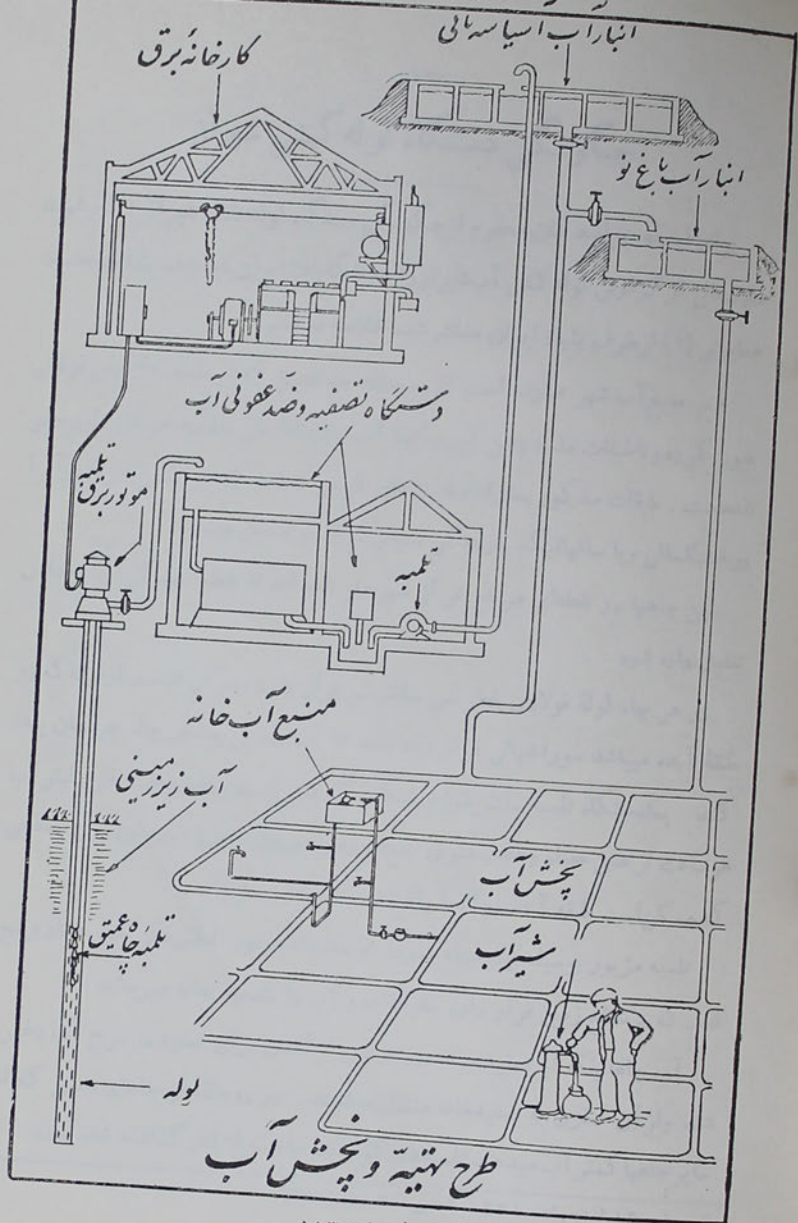 انبار آب آسیاسه تائی
کارخانهٔ برق
انبار آب باغ نو
دستگاه تصفیه و ضد عفونی آب
تلمبه
موتور برق
تلمبه
منبع آب خانه
آب زیرزمینی
پخش آب
تلمبه چاه عمیق
شیر آب
لوله
طرح تهیه و پخش آب